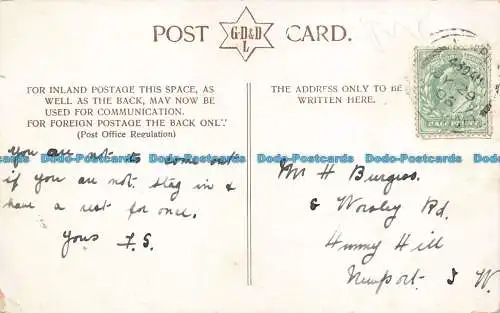 POST CARD.
G·D&D
L
FOR INLAND POSTAGE THIS SPACE, AS
WELL AS THE BACK, MAY NOW BE
USED FOR COMMUNICATION.
FOR FOREIGN POSTAGE THE BACK ONLY
(Post Office Regulation)
THE ADDRESS ONLY TO BE
WRITTEN HERE.
You are not to come out
if you are not. stay in &
have a rest for once.
Yours F.S.
Mr H Burgess.
6 Worsley Rd.
Hunny Hill
Newport. I W.
Dado-Postcards Dado-Postcards Dado-Postcards Dado-Postcards